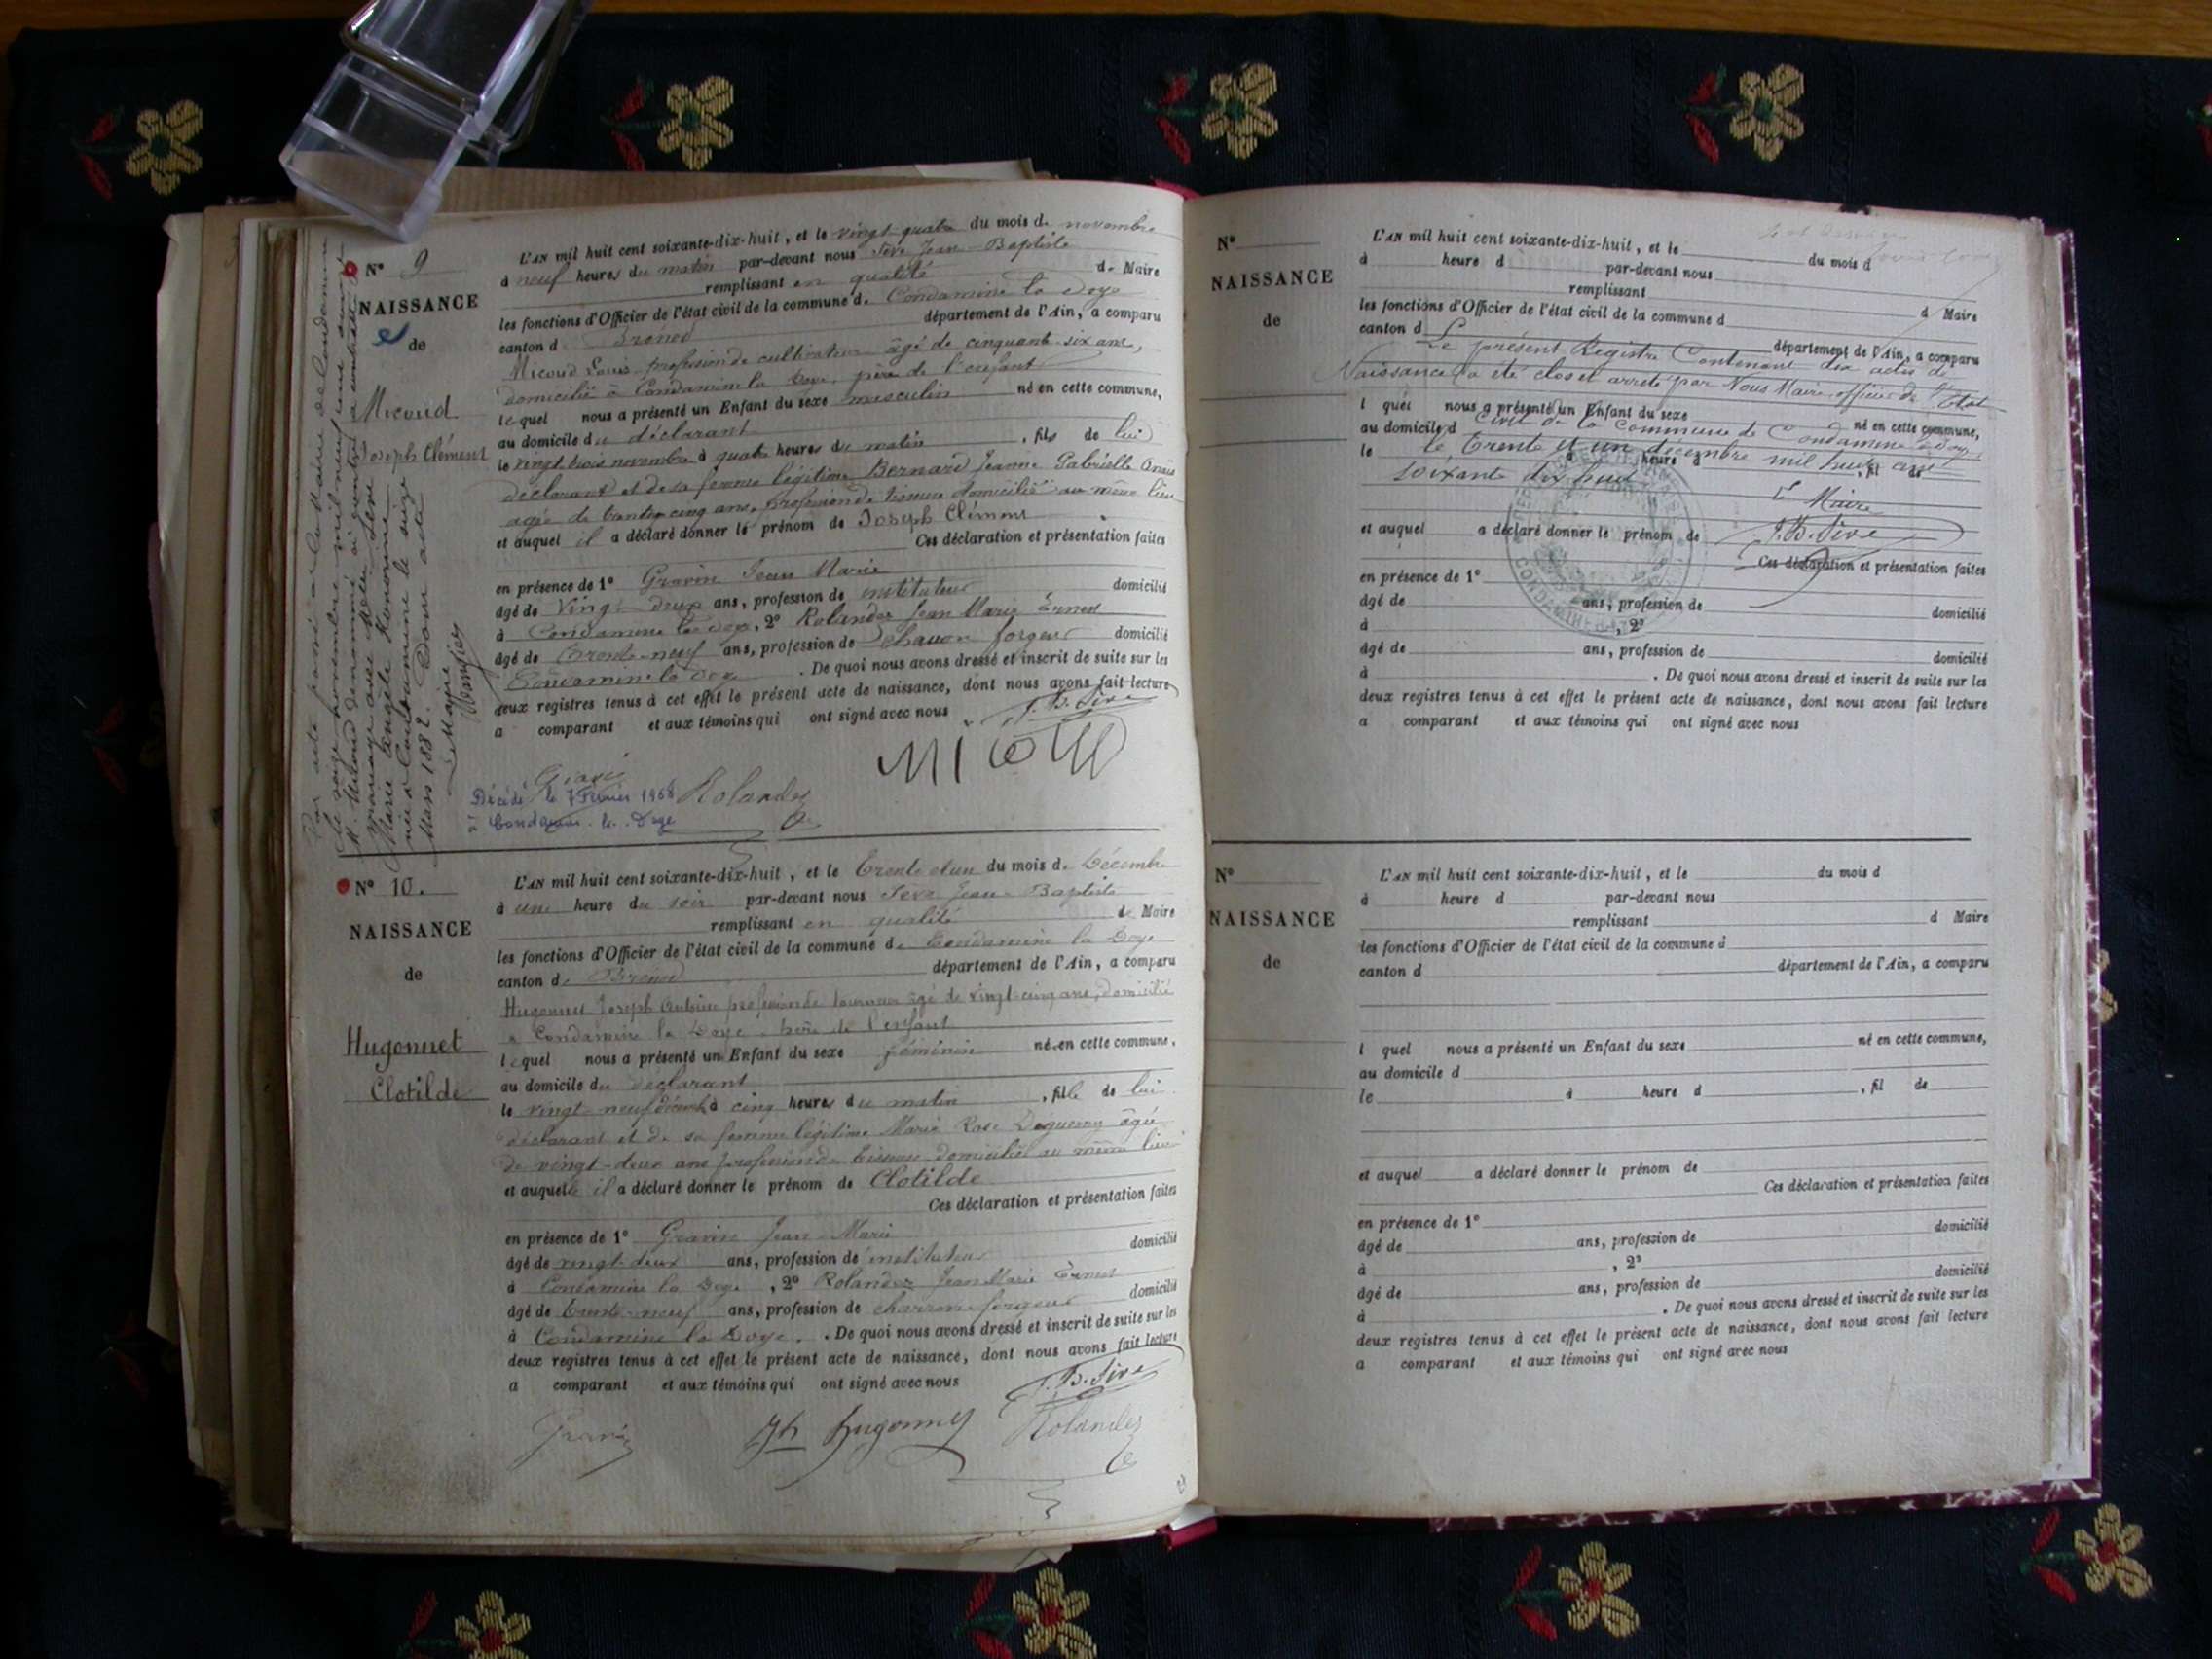 N° 9
NAISSANCE
de
Micoud
Joseph Clément
L'AN mil huit cent soixante-dix-huit, et le vingt quatre du mois de novembre
à neuf heures du matin par-devant nous Sève Jean-Baptiste
remplissant en qualité de Maire
les fonctions d'Officier de l'état civil de la commune de Condamine la Doye
canton d Brénod département de l'Ain, a comparu
Micoud Louis profession de cultivateur âgé de cinquante six ans,
domicilié à Condamine la Doye, père de l'enfant
lequel nous a présenté un Enfant du sexe masculin né en cette commune,
au domicile du déclarant
le vingt trois novembre à quatre heures du matin, fils de lui
déclarant et de sa femme légitime Bernard Jeanne Gabrielle
agée de trente cinq ans, profession de tisseuse domiciliée au même lieu
et auquel il a déclaré donner le prénom de Joseph Clément
Ces déclaration et présentation faites
en présence de 1° Gravin Jean Marie
âgé de vingt deux ans, profession de instituteur domicilié
à Condamine la Doye, 2° Rolandez Jean Marie Ernest
âgé de trente-neuf ans, profession de charron forgeur domicilié
Condamine la Doye. De quoi nous avons dressé et inscrit de suite sur les
deux registres tenus à cet effet le présent acte de naissance, dont nous avons fait lecture
a comparant et aux témoins qui ont signé avec nous
J.B. Sève
Micoud
Gravin
Rolandez
Décédé le 7 Février 1968
à Condamine-la-Doye
Par acte passé à la Mairie de Condamine
le seize novembre mil neuf cent
M. Micoud dénommé ci-contre a contracté
mariage avec
Marie Angèle
née à Condamine le seize
Mars 1882. Dont acte
Le Maire
N° 10.
NAISSANCE
de
Hugonnet
Clotilde
L'AN mil huit cent soixante-dix-huit, et le trente et un du mois de Décembre
à une heure du soir par-devant nous Sève Jean-Baptiste
remplissant en qualité de Maire
les fonctions d'Officier de l'état civil de la commune de Condamine la Doye
canton de Brénod département de l'Ain, a comparu
Hugonnet Joseph Antoine profession de tourneur âgé de vingt-cinq ans, domicilié
à Condamine la Doye, père de l'enfant
lequel nous a présenté un Enfant du sexe féminin né en cette commune,
au domicile du déclarant
le vingt-neuf décembre à cinq heures du matin, fille de lui
déclarant et de sa femme légitime Marie Rose Deguerry âgée
de vingt-deux ans profession de tisseuse domiciliée au même lieu
et auquelle il a déclaré donner le prénom de Clotilde
Ces déclaration et présentation faites
en présence de 1° Gravin Jean Marie
âgé de vingt-deux ans, profession de instituteur domicilié
à Condamine la Doye, 2° Rolandez Jean Marie Ernest
âgé de trente-neuf ans, profession de charron forgeur domicilié
à Condamine la Doye. De quoi nous avons dressé et inscrit de suite sur les
deux registres tenus à cet effet le présent acte de naissance, dont nous avons fait lecture
a comparant et aux témoins qui ont signé avec nous
J.B. Sève
Gravin
Jh Hugonnet
Rolandez
N°
NAISSANCE
de
L'AN mil huit cent soixante-dix-huit, et le du mois d
à heure d par-devant nous
remplissant d Maire
les fonctions d'Officier de l'état civil de la commune d
canton d département de l'Ain, a comparu
Le présent Registre Contenant dix actes de
Naissance a été clos et arrêté par Nous Maire officier de l'Etat
l quel nous a présenté un Enfant du sexe né en cette commune,
au domicile d
civil de la commune de Condamine la Doye
le à heure d , fil de
le trente et un décembre mil huit cent
soixante dix huit
Le Maire
et auquel a déclaré donner le prénom de
J.B. Sève
Ces déclaration et présentation faites
en présence de 1°
âgé de ans, profession de domicilié
à , 2°
âgé de ans, profession de domicilié
à . De quoi nous avons dressé et inscrit de suite sur les
deux registres tenus à cet effet le présent acte de naissance, dont nous avons fait lecture
a comparant et aux témoins qui ont signé avec nous
N°
NAISSANCE
de
L'AN mil huit cent soixante-dix-huit, et le du mois d
à heure d par-devant nous
remplissant d Maire
les fonctions d'Officier de l'état civil de la commune d
canton d département de l'Ain, a comparu
l quel nous a présenté un Enfant du sexe né en cette commune,
au domicile d
le à heure d , fil de
et auquel a déclaré donner le prénom de
Ces déclaration et présentation faites
en présence de 1°
âgé de ans, profession de domicilié
à , 2°
âgé de ans, profession de domicilié
à . De quoi nous avons dressé et inscrit de suite sur les
deux registres tenus à cet effet le présent acte de naissance, dont nous avons fait lecture
a comparant et aux témoins qui ont signé avec nous